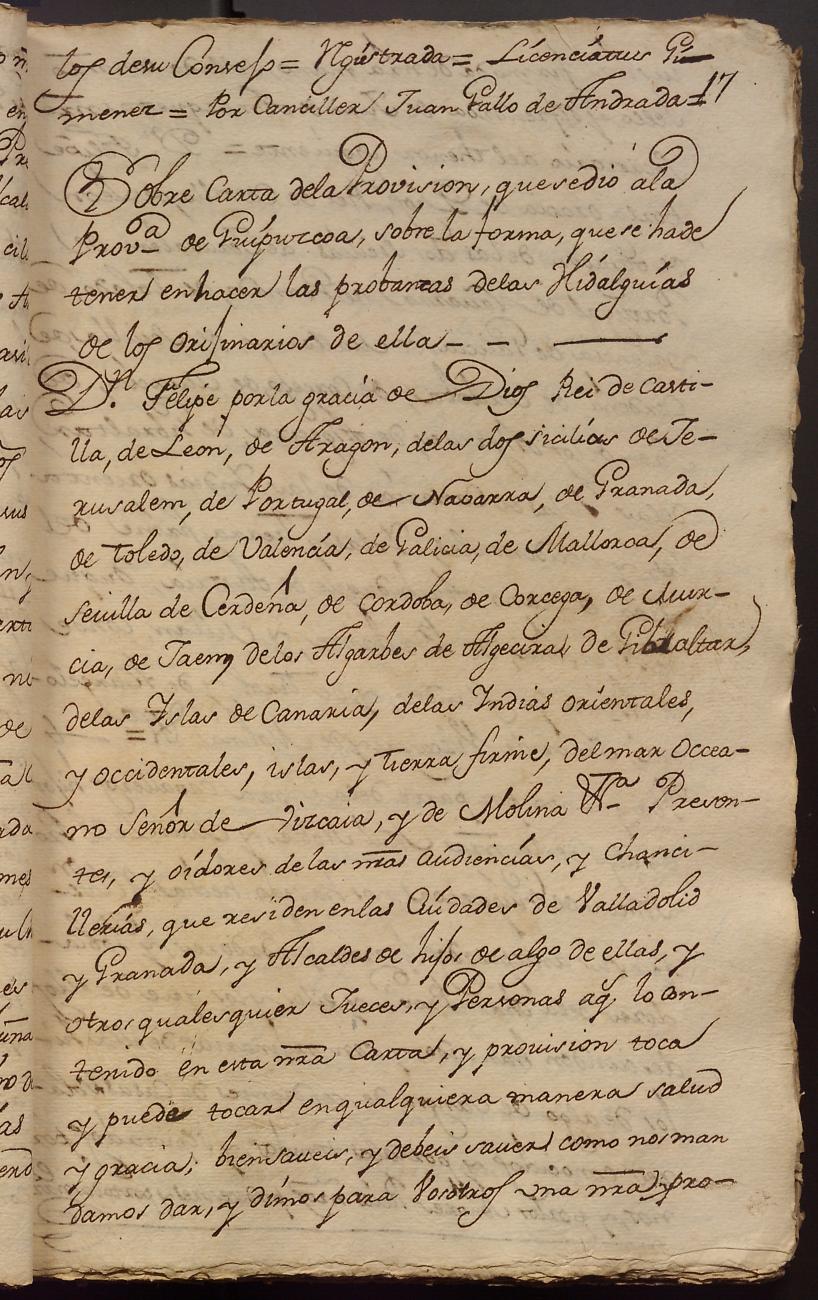 los desu Consejo = Rgistrada = Licenciatus Gi-
menez = Por Canciller Juan Gallo de Andrada = 17
Sobre Carta dela Provision, quesedio ála
Prov.ª de Guipuzcoa, sobre la forma, quese hade
tener enhacer las probanzas delas Hidalguías
de los orijinarios de ella - - —
D.n Felipe porla gracia de Dios Rei de Casti-
lla, de Leon, de Aragon, delas dos sicilias de Je-
rusalem, de Portugal, de Navarra, de Granada,
de Toledo, de Valencia, de Galicia, de Mallorca, de
sevilla de Cerdeña, de cordoba, de Corcega, de Mur-
cia, de Jaen, delos Algarbes de Algecira, de Gibraltar,
delas Islas de Canaria, delas Indias orientales,
y occidentales, islas, y tierra firme, delmar Occea-
no Señor de Vizcaia, y de Molina &.ª Presen-
tes, y oídores delas nras audiencías, y Chanci-
llerías, que residen enlas Ciudades de Valladolid
y Granada, y Alcaldes de hijos de algo de ellas, y
otros qualesquier Jueces, y Personas aq. lo con-
tenido en esta nra Carta, y provision toca
y puede tocar enqualquiera manera salud
y gracia; biensaveis, y debeis saver como nosman
damos dar, y dímos para Vosotros una nra pro-